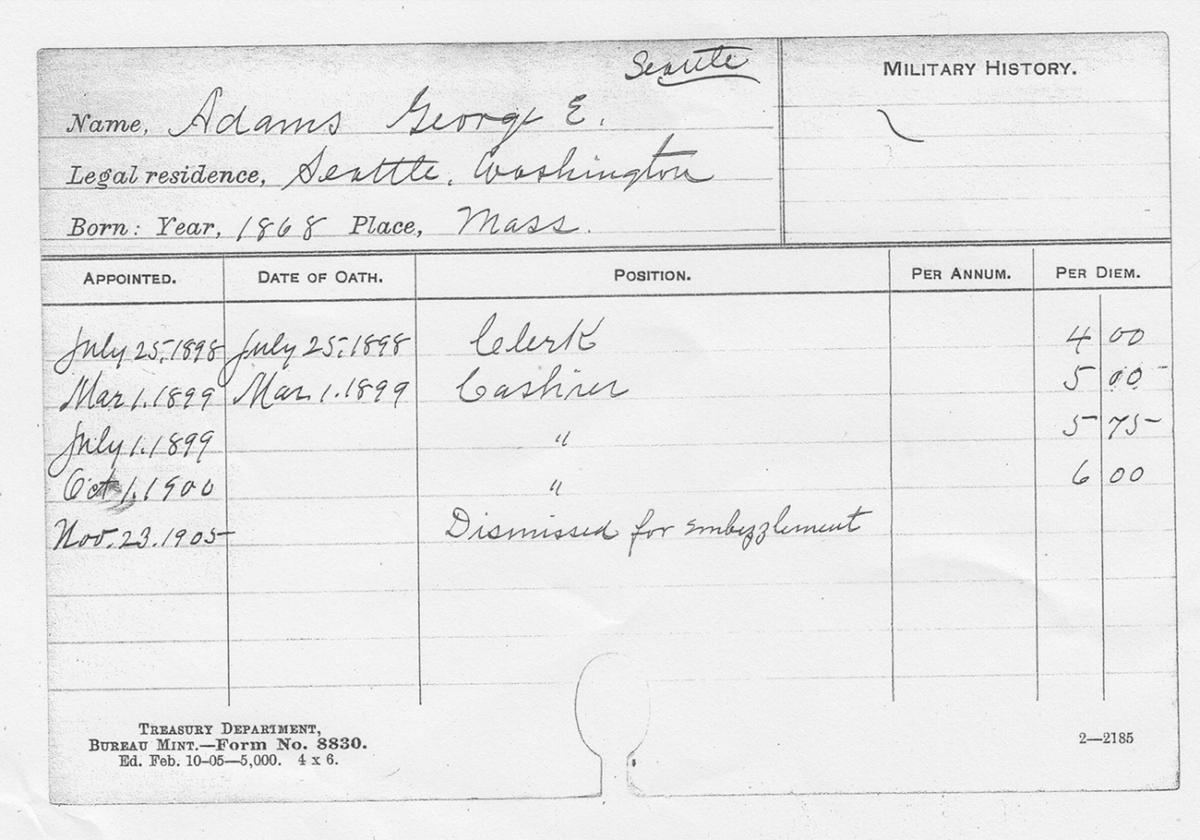 Seattle
MILITARY HISTORY.
Name, Adams George E.
Legal residence, Seattle, Washington
Born: Year, 1868 Place, Mass.
APPOINTED. DATE OF OATH. POSITION. PER ANNUM. PER DIEM.
July 25, 1898 July 25, 1898 Clerk 4 00
Mar 1. 1899 Mar. 1. 1899 Cashier 5 00
July 1. 1899 " 5 75
Oct 1. 1900 " 6 00
Nov. 23. 1905 Dismissed for embezzlement
TREASURY DEPARTMENT,
BUREAU MINT.—Form No. 8830.
Ed. Feb. 10-05—5,000. 4 x 6.
2—2185